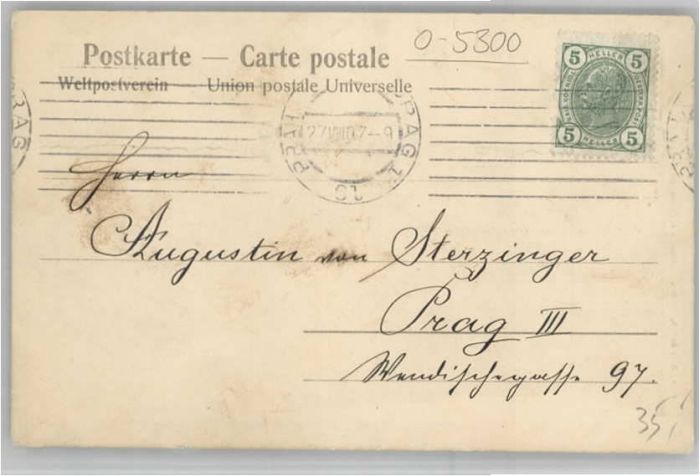 Postkarte — Carte postale
Weltpostverein — Union postale Universelle
O-5300
5 HELLER 5
5 HELLER 5
PRAG 1
PRAG
Herrn
Augustin von Sterzinger
Prag III
Wendischegasse 97.
35,